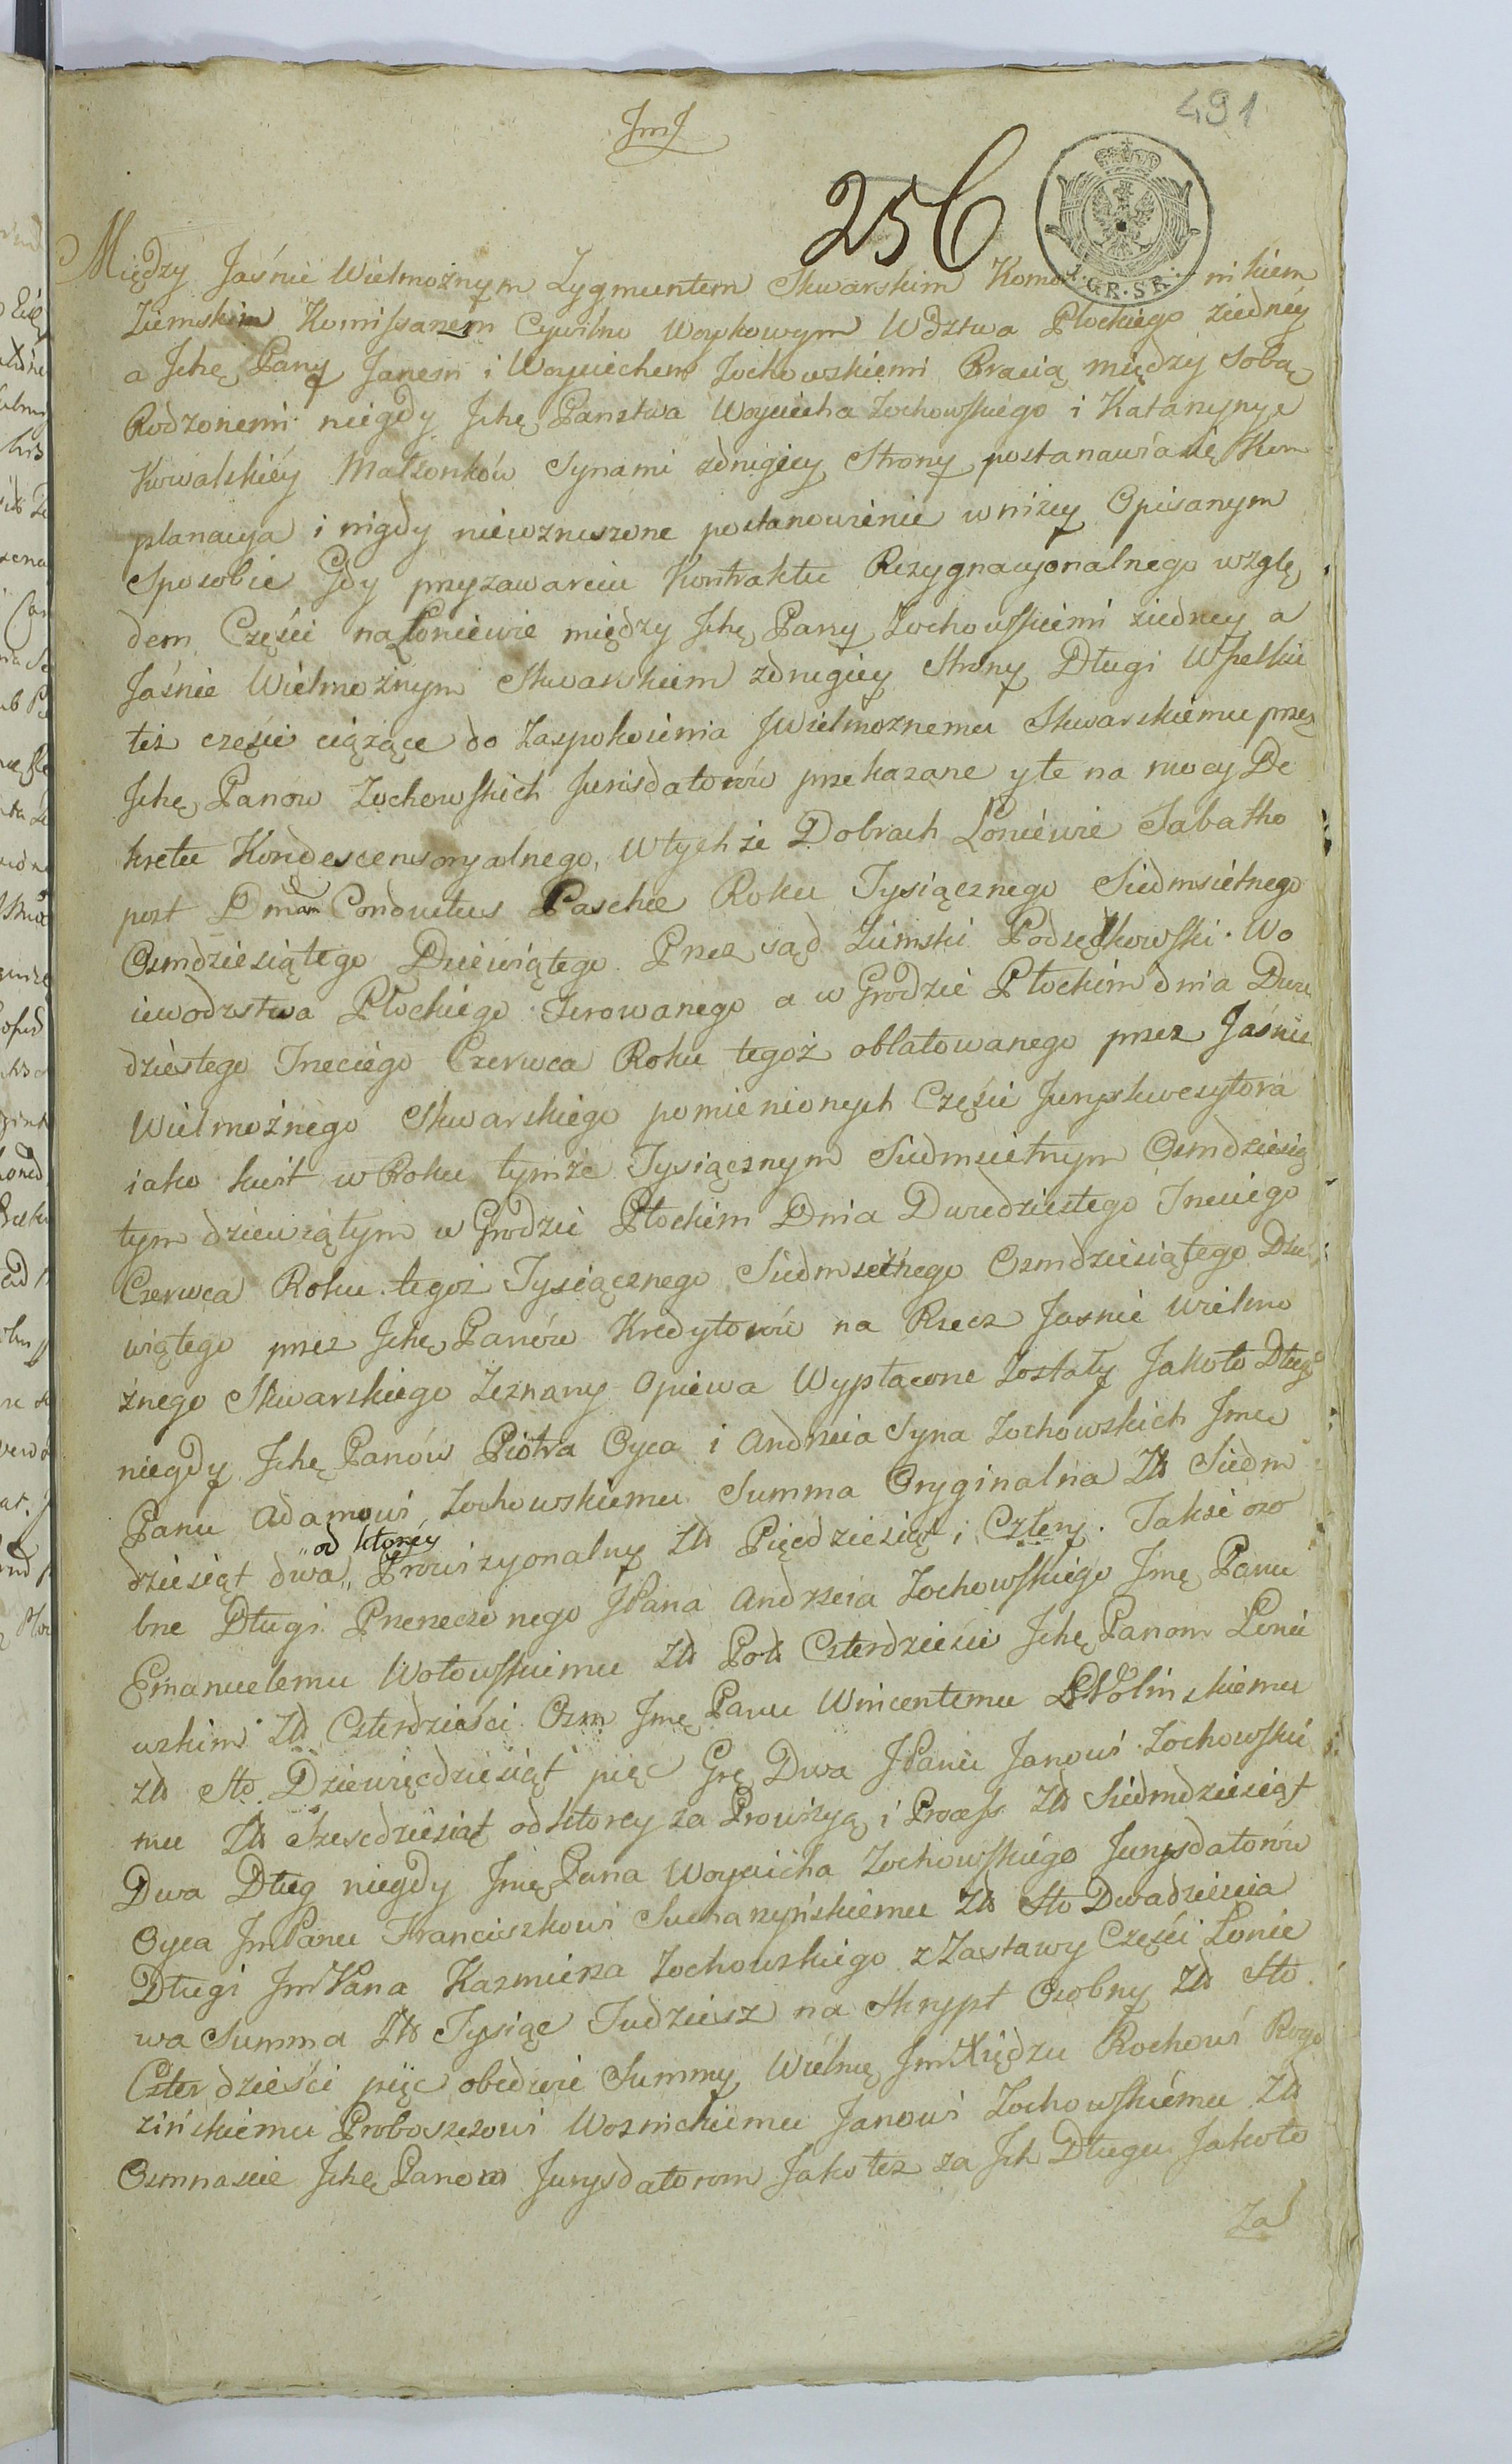 491
JmJ
256
1.GR.SR.
Między Jaśnie Wielmożnym Zygmuntem Skwarskim Komor nikiem
Ziemskim Komissarzem Cywilno Woyskowym Wdztwa Płockiego ziedney
a Jchę Pany Janem i Woyciechem Zochowskiemi Bracią między Sobą
Rodzonemi niegdy Jchę Panstwa Woyciecha Zochowskiego i Katarzyny z
Kowalskiey Małzonków Synami zdrugiey Strony postanawia się Kom
planacya i nigdy niewzruszone postanowienie wniżey Opisanym
Sposobie Gdy przyzawarciu Kontraktu Rezygnacyonalnego wzglę
dem Części na Łoniewie między Jchę Pany Zochowskiemi ziedney a
Jaśnie Wielmożnym Skwarskiem zdrugiey Strony Długi Wszelkie
też części ciążące do Zaspokoienia JWielmoznemu Skwarskiemu przez
Jchę Panow Zochowskich Jurisdatorów przekazane y te na mocy De
kretu Kondescensoryalnego, Wtychże Dobrach Łoniewie Sabatho
post Dmam Conductus Paschae Roku Tysiącznego Siedmsetnego
Osmdziesiątego Dziewiątego Przez sąd Ziemski Podsędkowski Wo
iewodztwa Płockiego Ferowanego a w Grodzie Płockim dnia Dwu
dziestego Trzeciego Czerwca Roku tegoż oblatowanego przez Jaśnie
Wielmożnego Skwarskiego pomienionych Części Juryskwesytora
iako kwit w Roku tymże Tysiącznym Siedmsetnym Osmdziesią
tym dziewiątym w Grodzie Płockim Dnia Dwudziestego Trzeciego
Czerwca Roku tegoż Tysiącznego Siedmsetnego Osmdziesiątego Dzie
wiątego przez Jchę Panów Kredytorów na Rzecz Jasnie Wielmo
żnego Skwarskiego Zeznany Opiewa Wypłacone Zostały Jakoto Długi
niegdy Jchę Panów Piotra Oyca i Andrzeia Syna Zochowskich Jmę
Panu Adamowi Zochowskiemu Summa Oryginalna Zł Siedm
dziesiąt dwa,, ,,od ktorey Prowizyonalny Zł Pięćdziesiąt i Cztery. Takze oso
bne Długi Przerzeczonego JPana Andrzeia Zochowskiego Jmę Panu
Emanuelemu Wołowskiemu Zł Pols Czterdzieści Jchę Panom Łonie
wskim Zł Czterdzieści Osm Jmę Panu Wincentemu Wolinskiemu
Zł Sto Dziewięćdziesiąt pięc Grę Dwa JPanu Janowi Zochowskie
mu Zł Szescdziesiąt od ktorey za Prowizyą i Process Zł Siedmdziesiąt
Dwa Dług niegdy Jmę Pana Woyciecha Zochowskiego Jurysdatorów
Oyca JmPanu Franciszkowi Sucharzyńskiemu Zł Sto Dwadziescia
Długi JmPana Kazmierza Zochowskiego z Zastawy Części Łonie
wa Summa Zł Tysiąc Tudziesz na Skrypt Osobny Zł Sto
Czterdzieści pięc obedwie Summy Wielmę JmXiędzu Rochowi Rogo
zińskiemu Proboszczowi Woznickiemu Janowi Zochowskiemu Zł
Osmnascie Jchę Panom Jurysdatorom Jakotez za Jch Długu Jakoto
Za